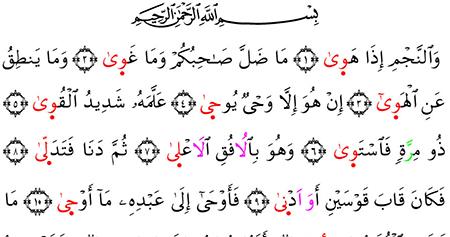 بِسْمِ اللَّهِ الرَّحْمَٰنِ الرَّحِيمِ
وَالنَّجْمِ إِذَا هَوِىٰ ﴿١﴾ مَا ضَلَّ صَـٰحِبُكُمْ وَمَا غَوِىٰ ﴿٢﴾ وَمَا يَنطِقُ
عَنِ الْهَوِىٰٓ ﴿٣﴾ إِنْ هُوَ إِلَّا وَحْىٌ يُوحِىٰ ﴿٤﴾ عَلَّمَهُۥ شَدِيدُ الْقُوِىٰ ﴿٥﴾
ذُو مِرَّةٍ فَاسْتَوِىٰ ﴿٦﴾ وَهُوَ بِالُافُقِ الَاعْلِىٰ ﴿٧﴾ ثُمَّ دَنَا فَتَدَلِّىٰ ﴿٨﴾
فَكَانَ قَابَ قَوْسَيْنِ أَوَ ادْنِىٰ ﴿٩﴾ فَأَوْحَىٰٓ إِلَىٰ عَبْدِهِۦ مَآ أَوْحِىٰ ﴿١٠﴾ مَا